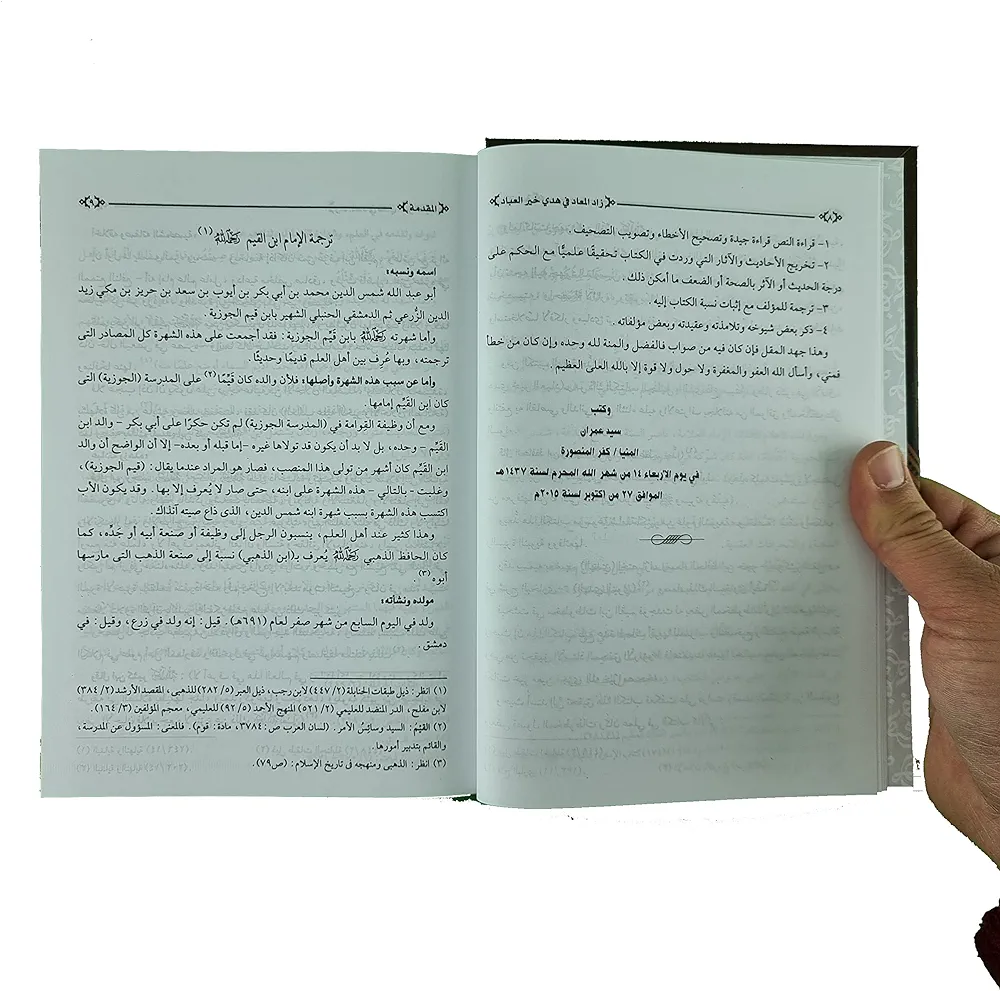 ٨
زاد المعاد في هدي خير العباد
١- قراءة النص قراءة جيدة وتصحيح الأخطاء وتصويب التصحيف.
٢- تخريج الأحاديث والآثار التي وردت في الكتاب تحقيقًا علميًّا مع الحكم على
درجة الحديث أو الأثر بالصحة أو الضعف ما أمكن ذلك.
٣- ترجمة للمؤلف مع إثبات نسبة الكتاب إليه.
٤- ذكر بعض شيوخه وتلامذته وعقيدته وبعض مؤلفاته.
وهذا جهد المقل فإن كان فيه من صواب فالفضل والمنة لله وحده وإن كان من خطأ
فمني، وأسأل الله العفو والمغفرة ولا حول ولا قوة إلا بالله العلى العظيم.
وكتب
سيد عمران
المنيا / كفر المنصورة
في يوم الأربعاء ١٤ من شهر الله المحرم لسنة ١٤٣٧هـ
الموافق ٢٧ من أكتوبر لسنة ٢٠١٥م
المقدمة
٩
ترجمة الإمام ابن القيم رَحِمَهُ اللهُ (١)
اسمه ونسبه:
أبو عبد الله شمس الدين محمد بن أبي بكر بن أيوب بن سعد بن حريز بن مكي زيد
الدين الزُّرعي ثم الدمشقي الحنبلي الشهير بابن قيم الجوزية.
وأما شهرته رَحِمَهُ اللهُ بابن قَيِّم الجوزية: فقد أجمعت على هذه الشهرة كل المصادر التى
ترجمته، وبها عُرِف بين أهل العلم قديمًا وحديثًا.
وأما عن سبب هذه الشهرة وأصلها: فلأن والده كان قَيِّمًا (٢) على المدرسة (الجوزية) التى
كان ابن القَيِّم إمامها.
ومع أن وظيفة القِوامة في (المدرسة الجوزية) لم تكن حكرًا على أبي بكر - والد ابن
القَيِّم - وحده، بل لا بد أن يكون قد تولاها غيره -إما قبله أو بعده- إلا أن الواضح أن والد
ابن القَيِّم كان أشهر من تولى هذا المنصب، فصار هو المراد عندما يقال: (قيم الجوزية)،
وغلبت - بالتالي - هذه الشهرة على ابنه، حتى صار لا يُعرف إلا بها. وقد يكون الأب
اكتسب هذه الشهرة بسبب شهرة ابنه شمس الدين، الذى ذاع صيته آنذاك.
وهذا كثير عند أهل العلم، ينسبون الرجل إلى وظيفة أو صنعة أبيه أو جَدِّه، كما
كان الحافظ الذهبي رَحِمَهُ اللهُ يُعرف بـ(ابن الذهبي) نسبة إلى صنعة الذهب التى مارسها
أبوه (٣).
مولده ونشأته:
ولد في اليوم السابع من شهر صفر لعام (٦٩١هـ). قيل: إنه ولد في زرع، وقيل: في
دمشق.
(١) انظر: ذيل طبقات الحنابلة (٢/ ٤٤٧) لابن رجب، ذيل العبر (٥/ ٢٨٢) للذهبى، المقصد الأرشد (٢/ ٣٨٤)
لابن مفلح، الدر المنضد للعليمي (٢/ ٥٢١) المنهج الأحمد (٥/ ٩٢) للعليمي، معجم المؤلفين (٣/ ١٦٤).
(٢) القَيِّمُ: السيد وسائِسُ الأمر. (لسان العرب ص: ٣٧٨٤، مادة: قوم). فالمعنى: المسؤول عن المدرسة،
والقائم بتدبير أمورها.
(٣) انظر: الذهبى ومنهجه فى تاريخ الإسلام: (ص٧٩).